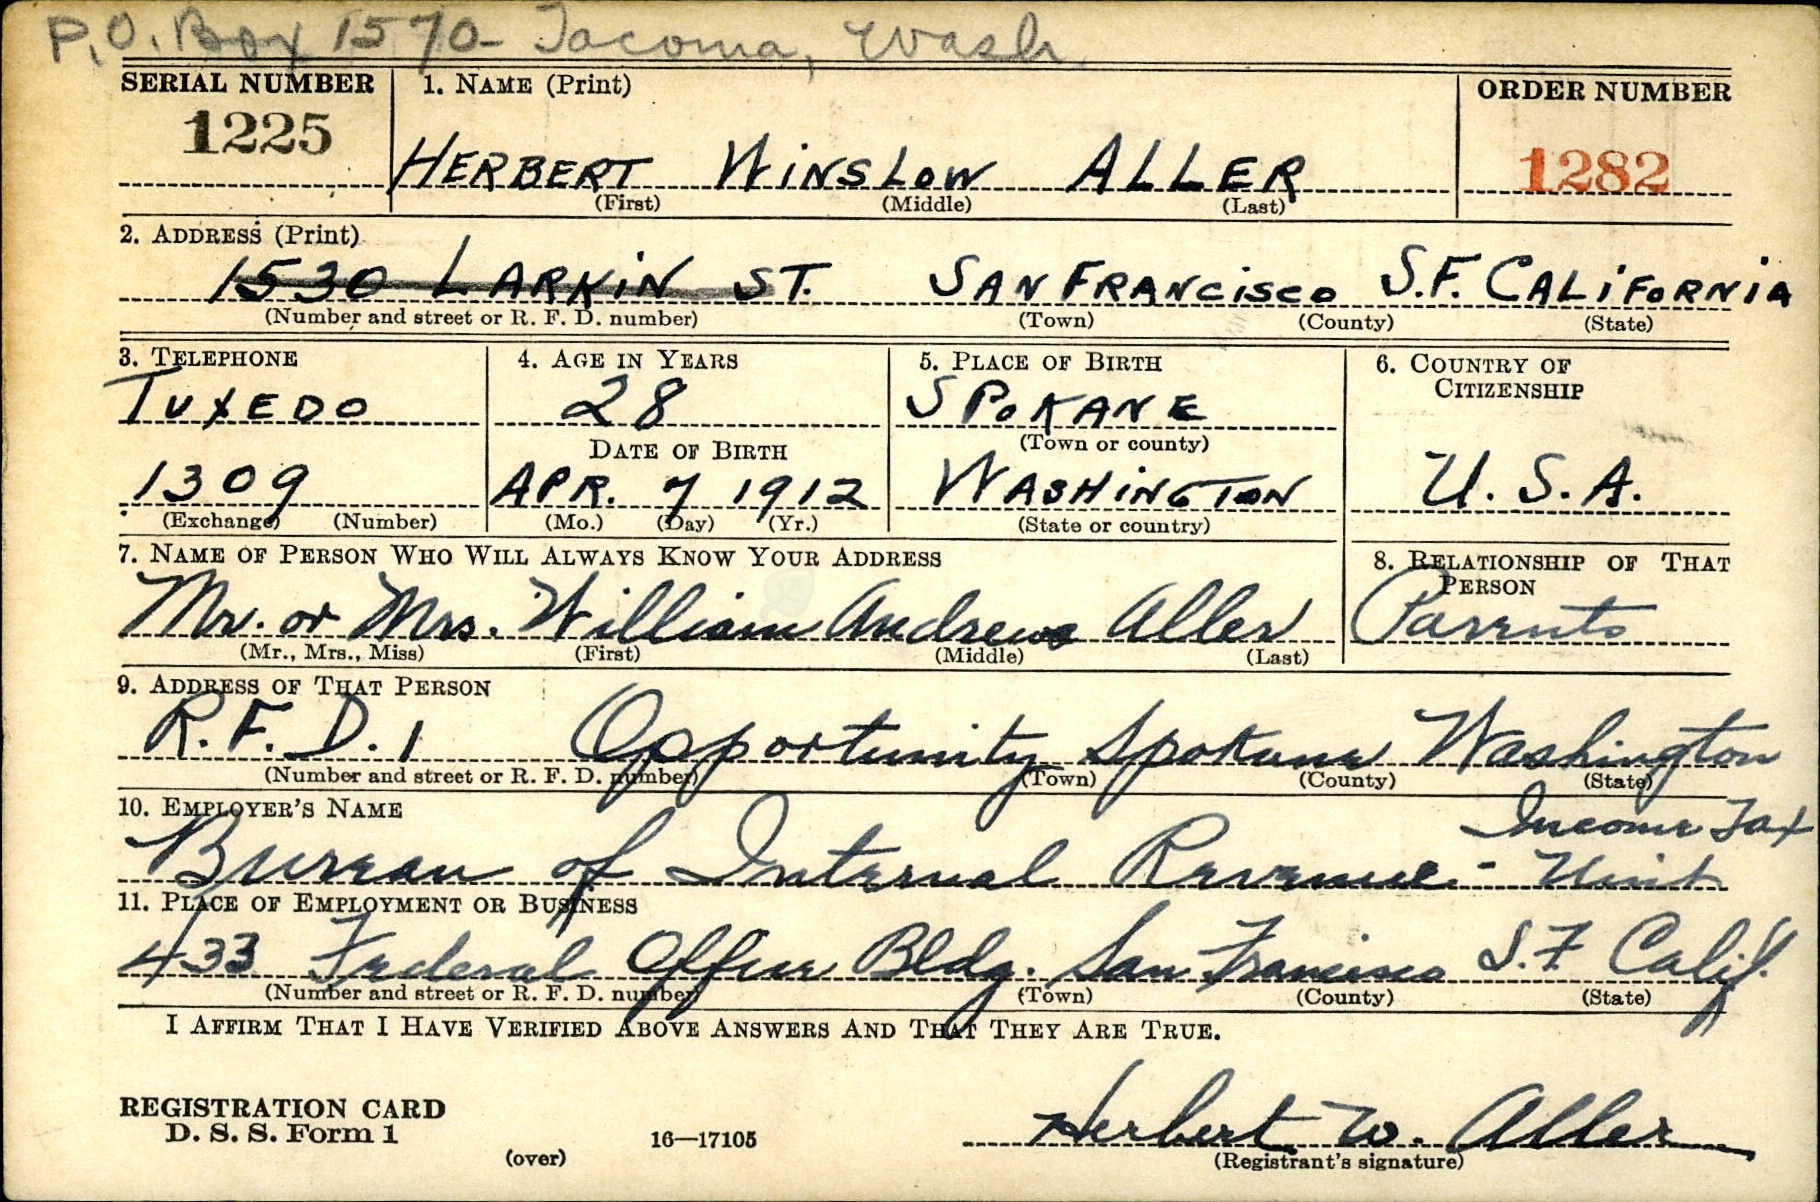 P.O. Box 1570 - Tacoma, Wash.
SERIAL NUMBER 1. NAME (Print) ORDER NUMBER
1225 HERBERT WINSLOW ALLER 1282
(First) (Middle) (Last)
2. ADDRESS (Print)
1530 LARKIN ST. SAN FRANCISCO S.F. CALIFORNIA
(Number and street or R. F. D. number) (Town) (County) (State)
3. TELEPHONE 4. AGE IN YEARS 5. PLACE OF BIRTH 6. COUNTRY OF CITIZENSHIP
TUXEDO 28 SPOKANE
DATE OF BIRTH (Town or county)
1309 APR. 7 1912 WASHINGTON U.S.A.
(Exchange) (Number) (Mo.) (Day) (Yr.) (State or country)
7. NAME OF PERSON WHO WILL ALWAYS KNOW YOUR ADDRESS 8. RELATIONSHIP OF THAT PERSON
Mr. or Mrs. William Andrews Aller Parents
(Mr., Mrs., Miss) (First) (Middle) (Last)
9. ADDRESS OF THAT PERSON
R.F.D. 1 Opportunity Spokane Washington
(Number and street or R. F. D. number) (Town) (County) (State)
10. EMPLOYER'S NAME
Bureau of Internal Revenue - Income Tax Unit
11. PLACE OF EMPLOYMENT OR BUSINESS
433 Federal Office Bldg. San Francisco S.F. Calif.
(Number and street or R. F. D. number) (Town) (County) (State)
I AFFIRM THAT I HAVE VERIFIED ABOVE ANSWERS AND THAT THEY ARE TRUE.
REGISTRATION CARD
D. S. S. Form 1 16—17105 Herbert W. Aller
(over) (Registrant's signature)